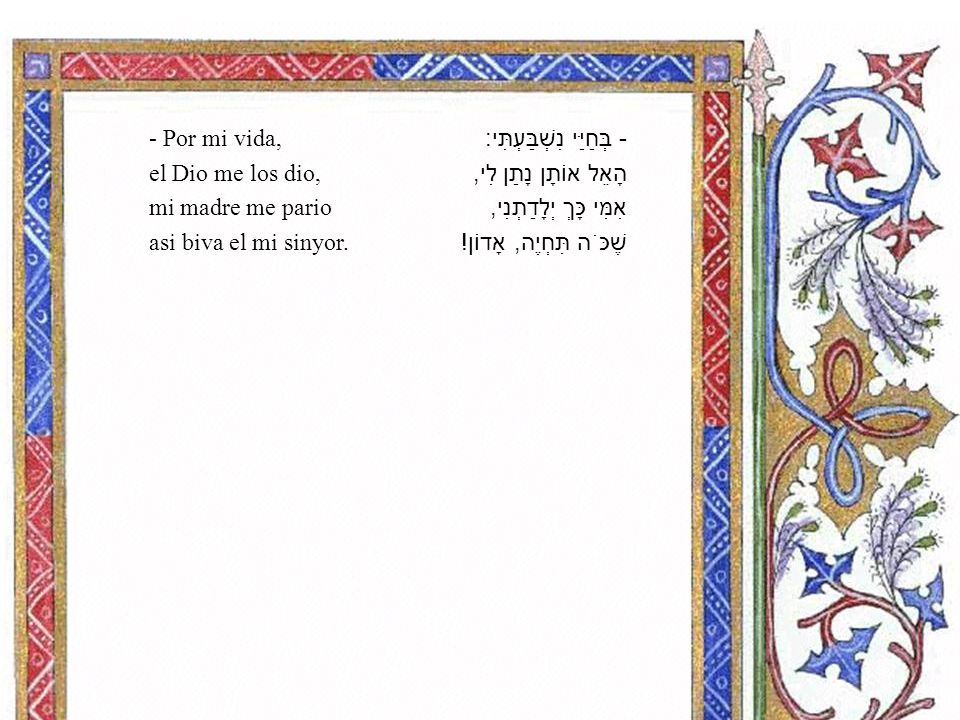 - Por mi vida,
el Dio me los dio,
mi madre me pario
asi biva el mi sinyor.
- בְּחַיַּי נִשְׁבַּעְתִּי:
הָאֵל אוֹתָן נָתַן לִי,
אִמִּי כָּךְ יְלָדַתְנִי,
שֶׁכֹּה תִּחְיֶה, אָדוֹן!